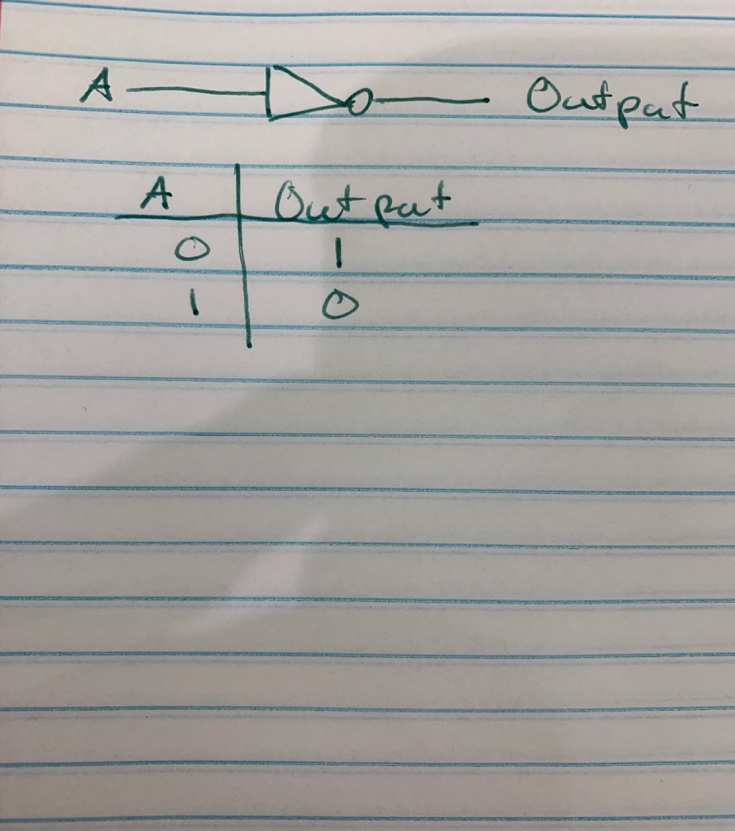 A Output
A Output
0 1
1 0